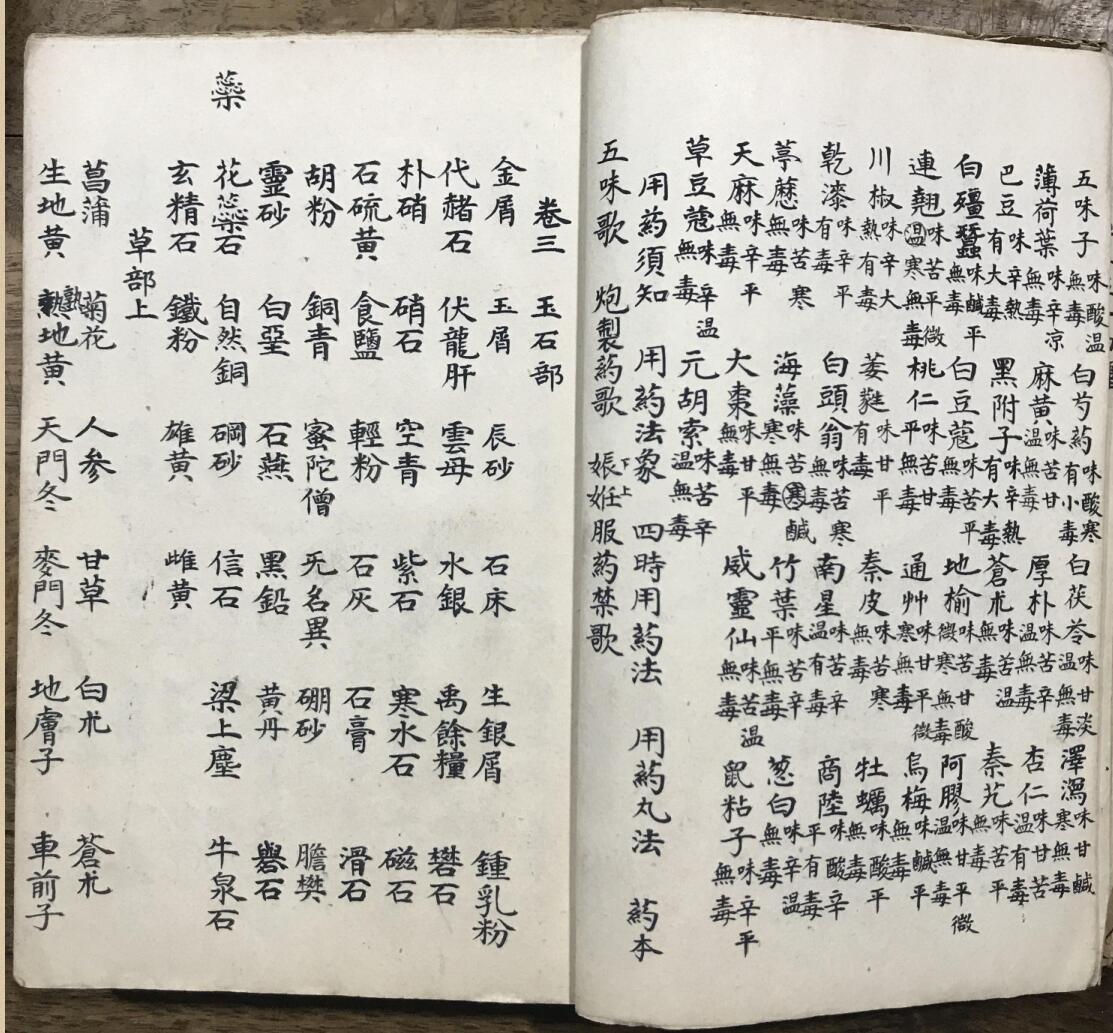 五味子味酸温無毒 白芍药味酸寒有小毒 白茯苓味甘淡温無毒 澤瀉味甘鹹寒無毒
薄荷葉味辛凉無毒 麻黄味苦甘温無毒 厚朴味苦辛温無毒 杏仁味甘苦温有毒
巴豆味辛熱有大毒 黑附子味辛熱有大毒 蒼朮味温無毒 秦艽味苦平無毒
白殭蠶味鹹平無毒 白豆蔻味苦平無毒 地榆味苦甘酸微寒無毒 阿膠味甘平微温無毒
連翹味苦平微温寒無毒 桃仁味苦甘平無毒 通艸味甘平微寒無毒 烏梅味鹹平無毒
川椒味辛大熱有毒 萎蕤味甘平有毒 秦皮味苦寒無毒 牡蠣味酸平無毒
乾漆味辛平有毒 白頭翁味苦寒無毒 南星味苦辛温有毒 商陸味酸辛平有毒
葶藶味苦寒無毒 海藻味苦寒鹹寒無毒 竹葉味苦辛平無毒 葱白味辛温無毒
天麻味辛平無毒 大棗味甘平無毒 威靈仙味苦温無毒 鼠粘子味辛平無毒
草豆蔻味辛温無毒 元胡索味苦辛温無毒
用药須知 用药法象 四時用药法 用药丸法 药本
五味歌 炮製药歌 娠下妊上服药禁歌
卷三 玉石部
金屑 玉屑 辰砂 石床 生銀屑 鍾乳粉
代赭石 伏龍肝 雲母 水銀 禹餘糧 礬石
朴硝 硝石 空青 紫石 寒水石 磁石
石硫黄 食鹽 輕粉 石灰 石膏 滑石
胡粉 銅青 蜜陀僧 旡名異 硼砂 膽樊
靈砂 白堊 石燕 黑鉛 黄丹 礜石
花蘂石 自然銅 碙砂 信石 梁上塵 牛泉石
蘂
玄精石 鐵粉 雄黄 雌黄
草部上
菖蒲 菊花 人参 甘草 白朮 蒼朮
生地黄 熟地黄 天門冬 麥門冬 地膚子 車前子
熟